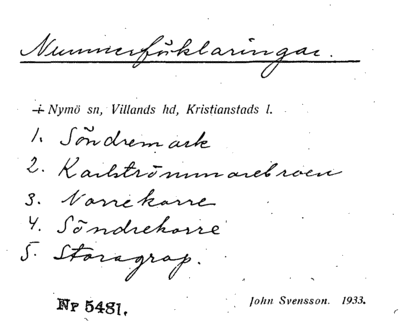 Nummerförklaringar.
i Nymö sn, Villands hd, Kristianstads l.
1. Söndremark
2. Karlströmmarebroen
3. Norrekorre
4. Söndrekorre
5. Storagrop.
Nr 5481.
John Svensson. 1933.